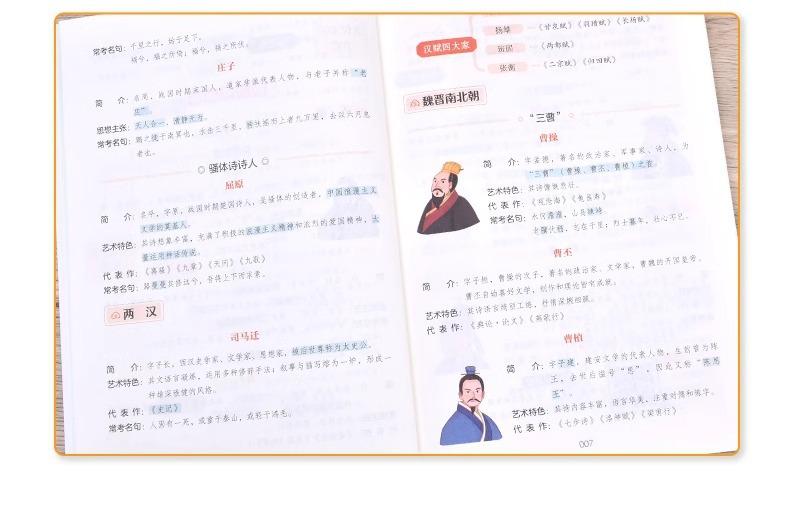 常考名句：千里之行，始于足下。
祸兮，福之所倚；福兮，祸之所伏。
庄子
简 介：名周，战国时期宋国人，道家学派代表人物，与老子并称“老
庄”。
思想主张：天人合一、清静无为。
常考名句：鹏之徙于南冥也，水击三千里，抟扶摇而上者九万里，去以六月息
者也。
骚体诗诗人
屈原
简 介：名平，字原，战国时期楚国诗人，是骚体的创造者，中国浪漫主义
文学的奠基人。
艺术特色：其诗想象丰富，充满了积极的浪漫主义精神和浓烈的爱国精神，大
量运用神话传说。
代 表 作：《离骚》《九章》《天问》《九歌》
常考名句：路曼曼其修远兮，吾将上下而求索。
两 汉
司马迁
简 介：字子长，西汉史学家、文学家、思想家，被后世尊称为太史公。
艺术特色：其文语言凝练，运用多种修辞手法；叙事与描写熔为一炉，形成一
种雄深雅健的风格。
代 表 作：《史记》
常考名句：人固有一死，或重于泰山，或轻于鸿毛。
汉赋四大家
扬雄 《甘泉赋》《羽猎赋》《长杨赋》
班固 《两都赋》
张衡 《二京赋》《归田赋》
魏晋南北朝
“三曹”
曹操
简 介：字孟德，著名的政治家、军事家、诗人，为
“三曹”（曹操、曹丕、曹植）之首。
艺术特色：其诗慷慨悲壮。
代 表 作：《观沧海》《龟虽寿》
常考名句：水何澹澹，山岛竦峙。
老骥伏枥，志在千里；烈士暮年，壮心不已。
曹丕
简 介：字子桓，曹操的次子，著名的政治家、文学家，曹魏的开国皇帝。
曹丕自幼喜好文学，创作和理论皆有成就。
艺术特色：其诗语言绮丽工练，抒情深婉细腻。
代 表 作：《典论·论文》《燕歌行》
曹植
简 介：字子建，建安文学的代表人物，生前曾为陈
王，去世后谥号“思”，因此又称“陈思
王”。
艺术特色：其诗内容丰富，语言华美，注重对偶和炼字。
代 表 作：《七步诗》《洛神赋》《梁甫行》
007